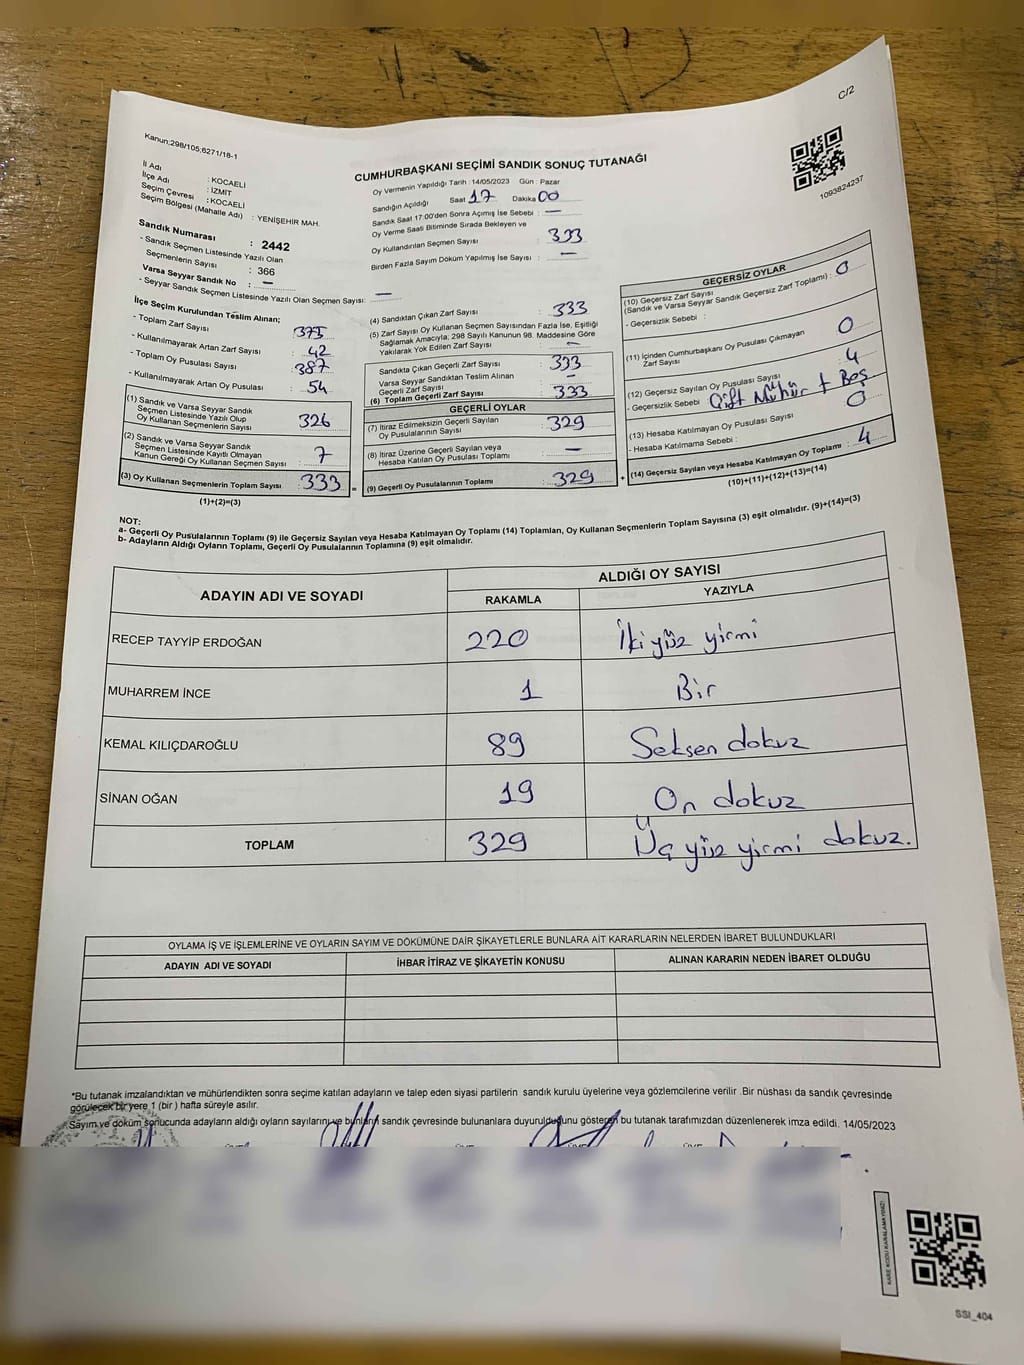 C/2
Kanun;298/105;6271/18-1
CUMHURBAŞKANI SEÇİMİ SANDIK SONUÇ TUTANAĞI
1093824237
İl Adı : KOCAELİ
İlçe Adı : İZMİT
Seçim Çevresi : KOCAELİ
Seçim Bölgesi (Mahalle Adı) : YENİŞEHİR MAH.
Sandık Numarası : 2442
- Sandık Seçmen Listesinde Yazılı Olan
Seçmenlerin Sayısı : 366
Varsa Seyyar Sandık No : —
- Seyyar Sandık Seçmen Listesinde Yazılı Olan Seçmen Sayısı: —
Oy Vermenin Yapıldığı Tarih : 14/05/2023 Gün : Pazar
Sandığın Açıldığı Saat 17 Dakika 00
Sandık Saat 17:00'den Sonra Açımış İse Sebebi : —
Oy Verme Saati Bitiminde Sırada Bekleyen ve
Oy Kullandırılan Seçmen Sayısı : 333
Birden Fazla Sayım Döküm Yapılmış İse Sayısı : —
İlçe Seçim Kurulundan Teslim Alınan;
- Toplam Zarf Sayısı : 375
- Kullanılmayarak Artan Zarf Sayısı : 42
- Toplam Oy Pusulası Sayısı : 387
- Kullanılmayarak Artan Oy Pusulası : 54
(1) Sandık ve Varsa Seyyar Sandık
Seçmen Listesinde Yazılı Olup
Oy Kullanan Seçmenlerin Sayısı : 326
(2) Sandık ve Varsa Seyyar Sandık
Seçmen Listesinde Kayıtlı Olmayan
Kanun Gereği Oy Kullanan Seçmen Sayısı : 7
(3) Oy Kullanan Seçmenlerin Toplam Sayısı : 333 =
(1)+(2)=(3)
(4) Sandıktan Çıkan Zarf Sayısı : 333
(5) Zarf Sayısı Oy Kullanan Seçmen Sayısından Fazla İse, Eşitliği
Sağlamak Amacıyla; 298 Sayılı Kanunun 98. Maddesine Göre
Yakılarak Yok Edilen Zarf Sayısı : —
Sandıkta Çıkan Geçerli Zarf Sayısı : 333
Varsa Seyyar Sandıktan Teslim Alınan
Geçerli Zarf Sayısı : —
(6) Toplam Geçerli Zarf Sayısı : 333
GEÇERLİ OYLAR
(7) İtiraz Edilmeksizin Geçerli Sayılan
Oy Pusulalarının Sayısı : 329
(8) İtiraz Üzerine Geçerli Sayılan veya
Hesaba Katılan Oy Pusulası Toplamı : —
(9) Geçerli Oy Pusulalarının Toplamı : 329 +
GEÇERSİZ OYLAR
(10) Geçersiz Zarf Sayısı
(Sandık ve Varsa Seyyar Sandık Geçersiz Zarf Toplamı) : 0
- Geçersizlik Sebebi :
(11) İçinden Cumhurbaşkanı Oy Pusulası Çıkmayan
Zarf Sayısı : 0
(12) Geçersiz Sayılan Oy Pusulası Sayısı : 4
- Geçersizlik Sebebi Çift Mühür + Boş
(13) Hesaba Katılmayan Oy Pusulası Sayısı : 0
- Hesaba Katılmama Sebebi :
(14) Geçersiz Sayılan veya Hesaba Katılmayan Oy Toplamı : 4
(10)+(11)+(12)+(13)=(14)
NOT:
a- Geçerli Oy Pusulalarının Toplamı (9) ile Geçersiz Sayılan veya Hesaba Katılmayan Oy Toplamı (14) Toplamları, Oy Kullanan Seçmenlerin Toplam Sayısına (3) eşit olmalıdır. (9)+(14)=(3)
b- Adayların Aldığı Oyların Toplamı, Geçerli Oy Pusulalarının Toplamına (9) eşit olmalıdır.
ADAYIN ADI VE SOYADI ALDIĞI OY SAYISI
RAKAMLA YAZIYLA
RECEP TAYYİP ERDOĞAN 220 İki yüz yirmi
MUHARREM İNCE 1 Bir
KEMAL KILIÇDAROĞLU 89 Seksen dokuz
SİNAN OĞAN 19 On dokuz
TOPLAM 329 Üç yüz yirmi dokuz.
OYLAMA İŞ VE İŞLEMLERİNE VE OYLARIN SAYIM VE DÖKÜMÜNE DAİR ŞİKAYETLERLE BUNLARA AİT KARARLARIN NELERDEN İBARET BULUNDUKLARI
ADAYIN ADI VE SOYADI İHBAR İTİRAZ VE ŞİKAYETİN KONUSU ALINAN KARARIN NEDEN İBARET OLDUĞU
*Bu tutanak imzalandıktan ve mühürlendikten sonra seçime katılan adayların ve talep eden siyasi partilerin sandık kurulu üyelerine veya gözlemcilerine verilir .Bir nüshası da sandık çevresinde
görülecek bir yere 1 (bir ) hafta süreyle asılır.
Sayım ve döküm sonucunda adayların aldığı oyların sayılarını ve bunların sandık çevresinde bulunanlara duyurulduğunu gösteren bu tutanak tarafımızdan düzenlenerek imza edildi. 14/05/2023
KARE KODU KARALAMAYINIZ!
SSI_404